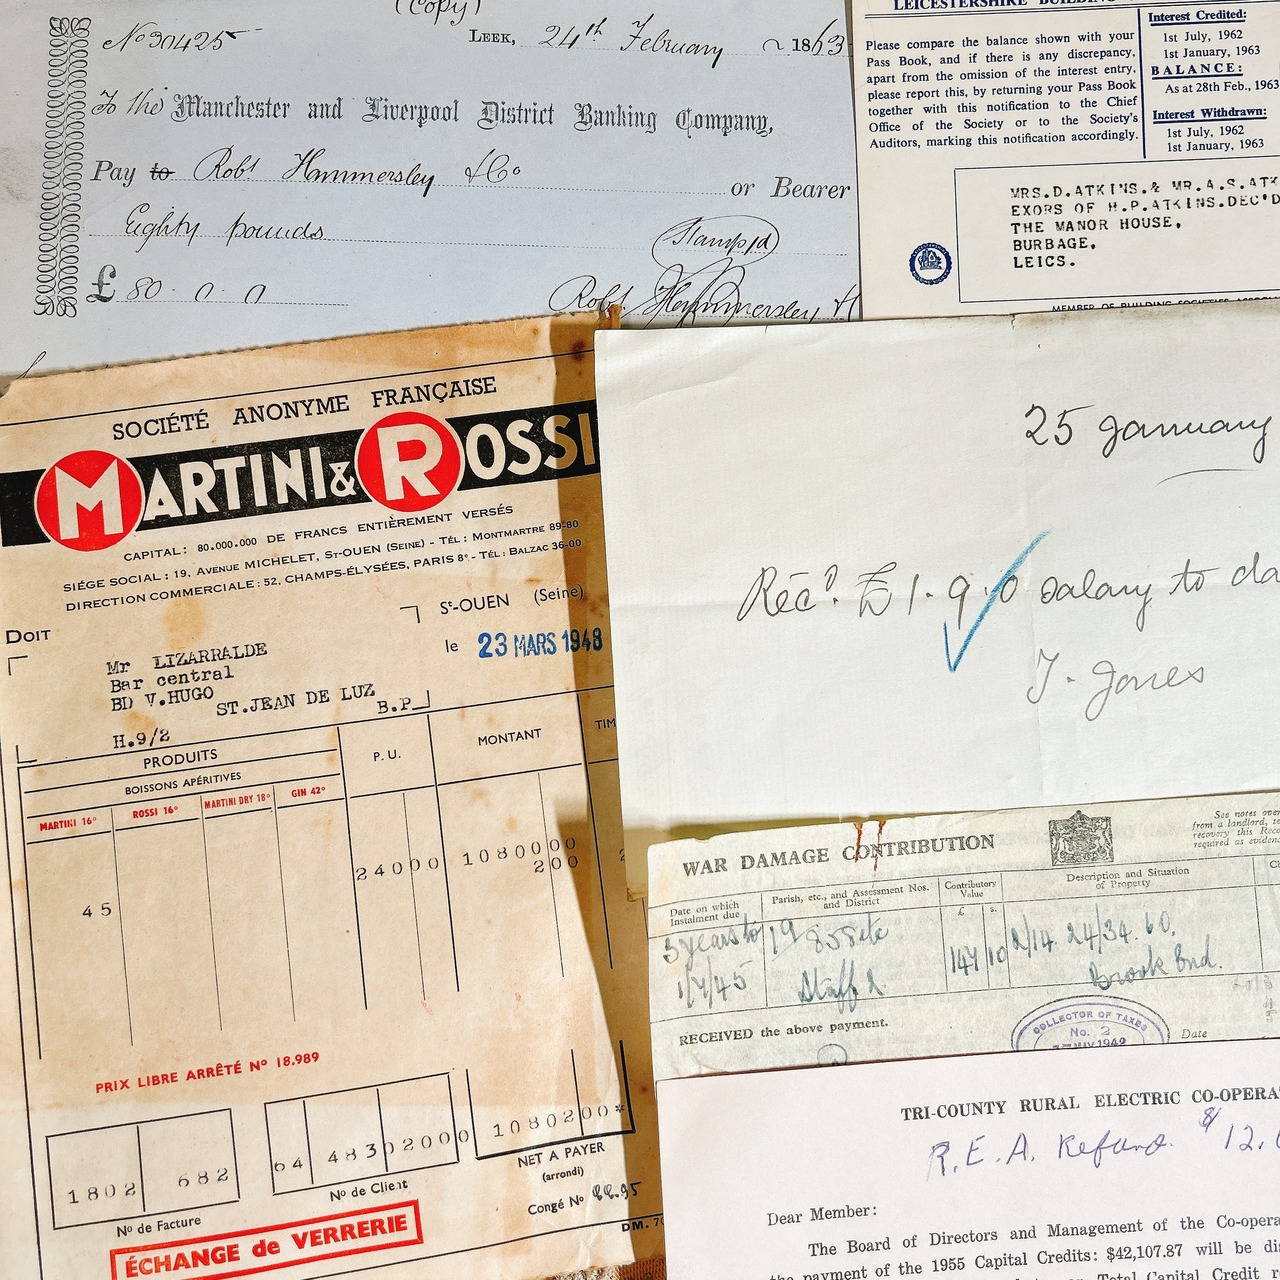 (Copy)
No 30425
LEEK, 24th February 1863
To the Manchester and Liverpool District Banking Company,
Pay to Robt Hammersley & Co or Bearer
Eighty pounds
Stamp 1d
£ 80. 0. 0
Robt Hammersley
LEICESTERSHIRE BUILDING
Please compare the balance shown with your
Pass Book, and if there is any discrepancy,
apart from the omission of the interest entry,
please report this, by returning your Pass Book
together with this notification to the Chief
Office of the Society or to the Society's
Auditors, marking this notification accordingly.
Interest Credited:
1st July, 1962
1st January, 1963
BALANCE:
As at 28th Feb., 1963
Interest Withdrawn:
1st July, 1962
1st January, 1963
MRS.D.ATKINS.& MR.A.S.ATK
EXORS OF H.P.ATKINS.DEC'D
THE MANOR HOUSE,
BURBAGE,
LEICS.
MEMBER OF BUILDING SOCIETIES
SOCIÉTÉ ANONYME FRANÇAISE
MARTINI & ROSSI
CAPITAL: 80.000.000 DE FRANCS ENTIÈREMENT VERSÉS
SIÉGE SOCIAL: 19, AVENUE MICHELET, ST-OUEN (SEINE) - TÉL: MONTMARTRE 89-80
DIRECTION COMMERCIALE: 52, CHAMPS-ÉLYSÉES, PARIS 8e - TÉL: BALZAC 36-00
DOIT
St-OUEN (Seine)
le 23 MARS 1948
Mr LIZARRALDE
Bar central
BD V.HUGO
ST.JEAN DE LUZ
B.P
H.9/2
PRODUITS
P. U.
MONTANT
TIM
BOISSONS APÉRITIVES
MARTINI 16° ROSSI 16° MARTINI DRY 18° GIN 42°
24000 1080000
200
45
PRIX LIBRE ARRÊTÉ No 18.989
1802 682
64 483 02000
1080200*
No de Facture
No de Client
NET A PAYER
(arrondi)
Congé No
DM. 70
ÉCHANGE de VERRERIE
25 January
Recd. £1.9.0 salary to da
J. Jones
WAR DAMAGE CONTRIBUTION
See notes over
from a landlord, te
recovery this Rece
required as evidenc
Date on which
Instalment due
Parish, etc., and Assessment Nos.
and District
Contributory
Value
£ s.
Description and Situation
of Property
3 years to
1/7/45
147 10
2/14. 24/34. 60.
Brook End.
RECEIVED the above payment.
COLLECTOR OF TAXES
No. 2
Date
TRI-COUNTY RURAL ELECTRIC CO-OPERA
R.E.A. Refund. $12.
Dear Member:
The Board of Directors and Management of the Co-opera
the payment of the 1955 Capital Credits: $42,107.87 will be dis
Total Capital Credit r